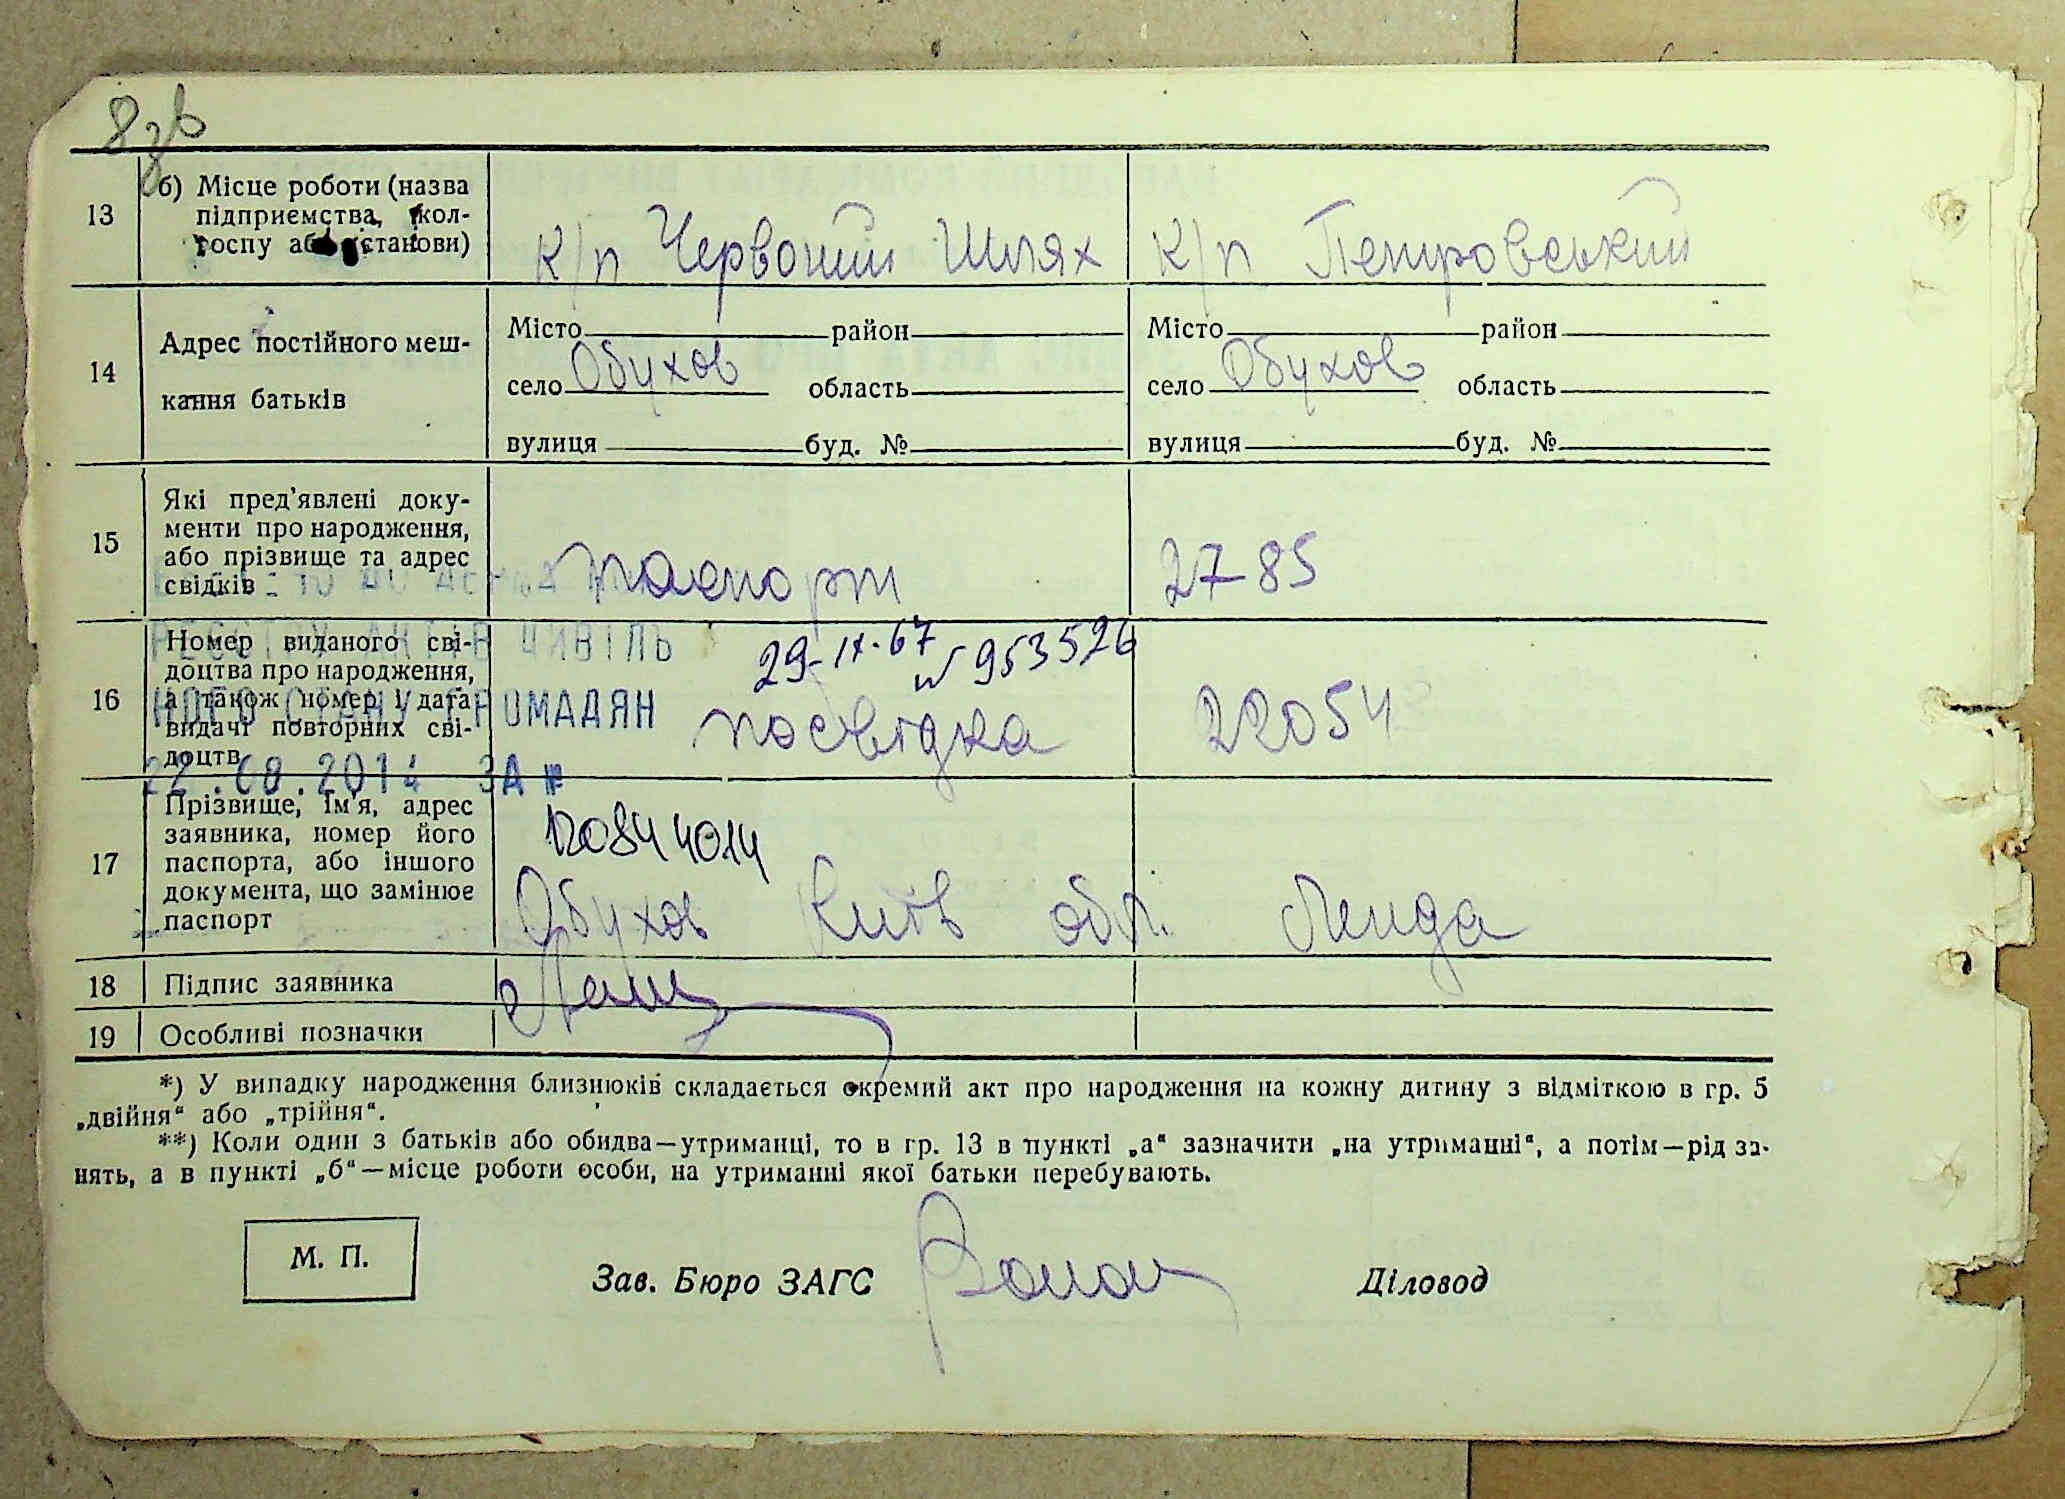 8зв
13
б) Місце роботи (назва
підприємства, кол-
госпу або установи)
к/п Червоний Шлях
к/п Петровський
14
Адрес постійного меш-
кання батьків
Місто район
село Обухов область
вулиця буд. №
Місто район
село Обухов область
вулиця буд. №
15
Які пред'явлені доку-
менти про народження,
або прізвище та адрес
свідків
паспорт
27-85
16
Номер виданого сві-
доцтва про народження,
а також номер і дата
видачі повторних сві-
доцтв
29-IX-67 № 953526
посвідка
22054
РЕЄСТРУ АКТІВ ЦИВІЛЬ
НОГО СТАНУ ГРОМАДЯН
22.08.2014 ЗА №
17
Прізвище, ім'я, адрес
заявника, номер його
паспорта, або іншого
документа, що замінює
паспорт
Обухов Київ обл.
18
Підпис заявника
19
Особливі позначки
*) У випадку народження близнюків складається окремий акт про народження на кожну дитину з відміткою в гр. 5
„двійня“ або „трійня“.
**) Коли один з батьків або обидва—утриманці, то в гр. 13 в пункті „а“ зазначити „на утриманні“, а потім—рід за-
нять, а в пункті „б“—місце роботи особи, на утриманні якої батьки перебувають.
М. П.
Зав. Бюро ЗАГС
Діловод